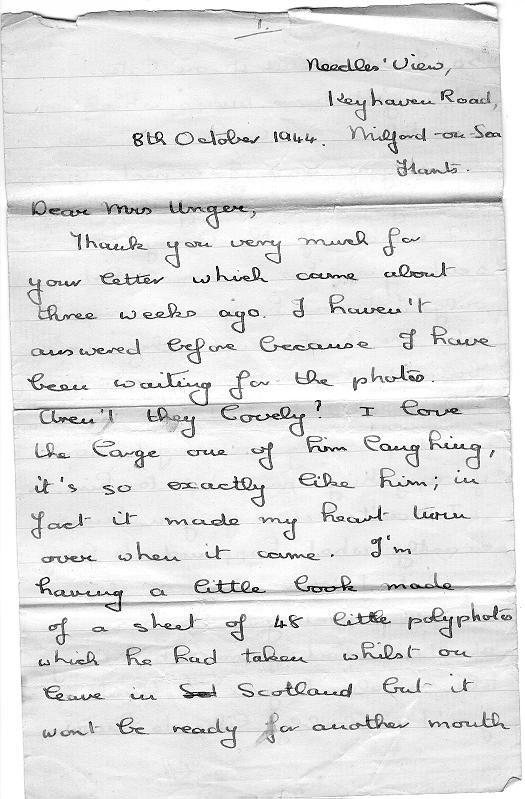 1.
Needles' View,
Keyhaven Road,
8th October 1944. Milford-on-Sea
Hants.
Dear Mrs Unger,
Thank you very much for
your letter which came about
three weeks ago. I haven't
answered before because I have
been waiting for the photos.
Aren't they lovely? I love
the large one of him laughing,
it's so exactly like him; in
fact it made my heart turn
over when it came. I'm
having a little book made
of a sheet of 48 little polyphotos
which he had taken whilst on
leave in Scotland but it
won't be ready for another month